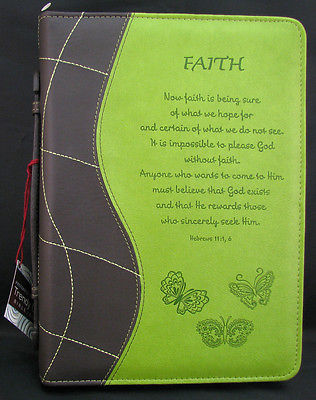 FAITH
Now faith is being sure
of what we hope for
and certain of what we do not see.
It is impossible to please God
without faith.
Anyone who wants to come to Him
must believe that God exists
and that He rewards those
who sincerely seek Him.
Hebrews 11:1, 6
Trendy